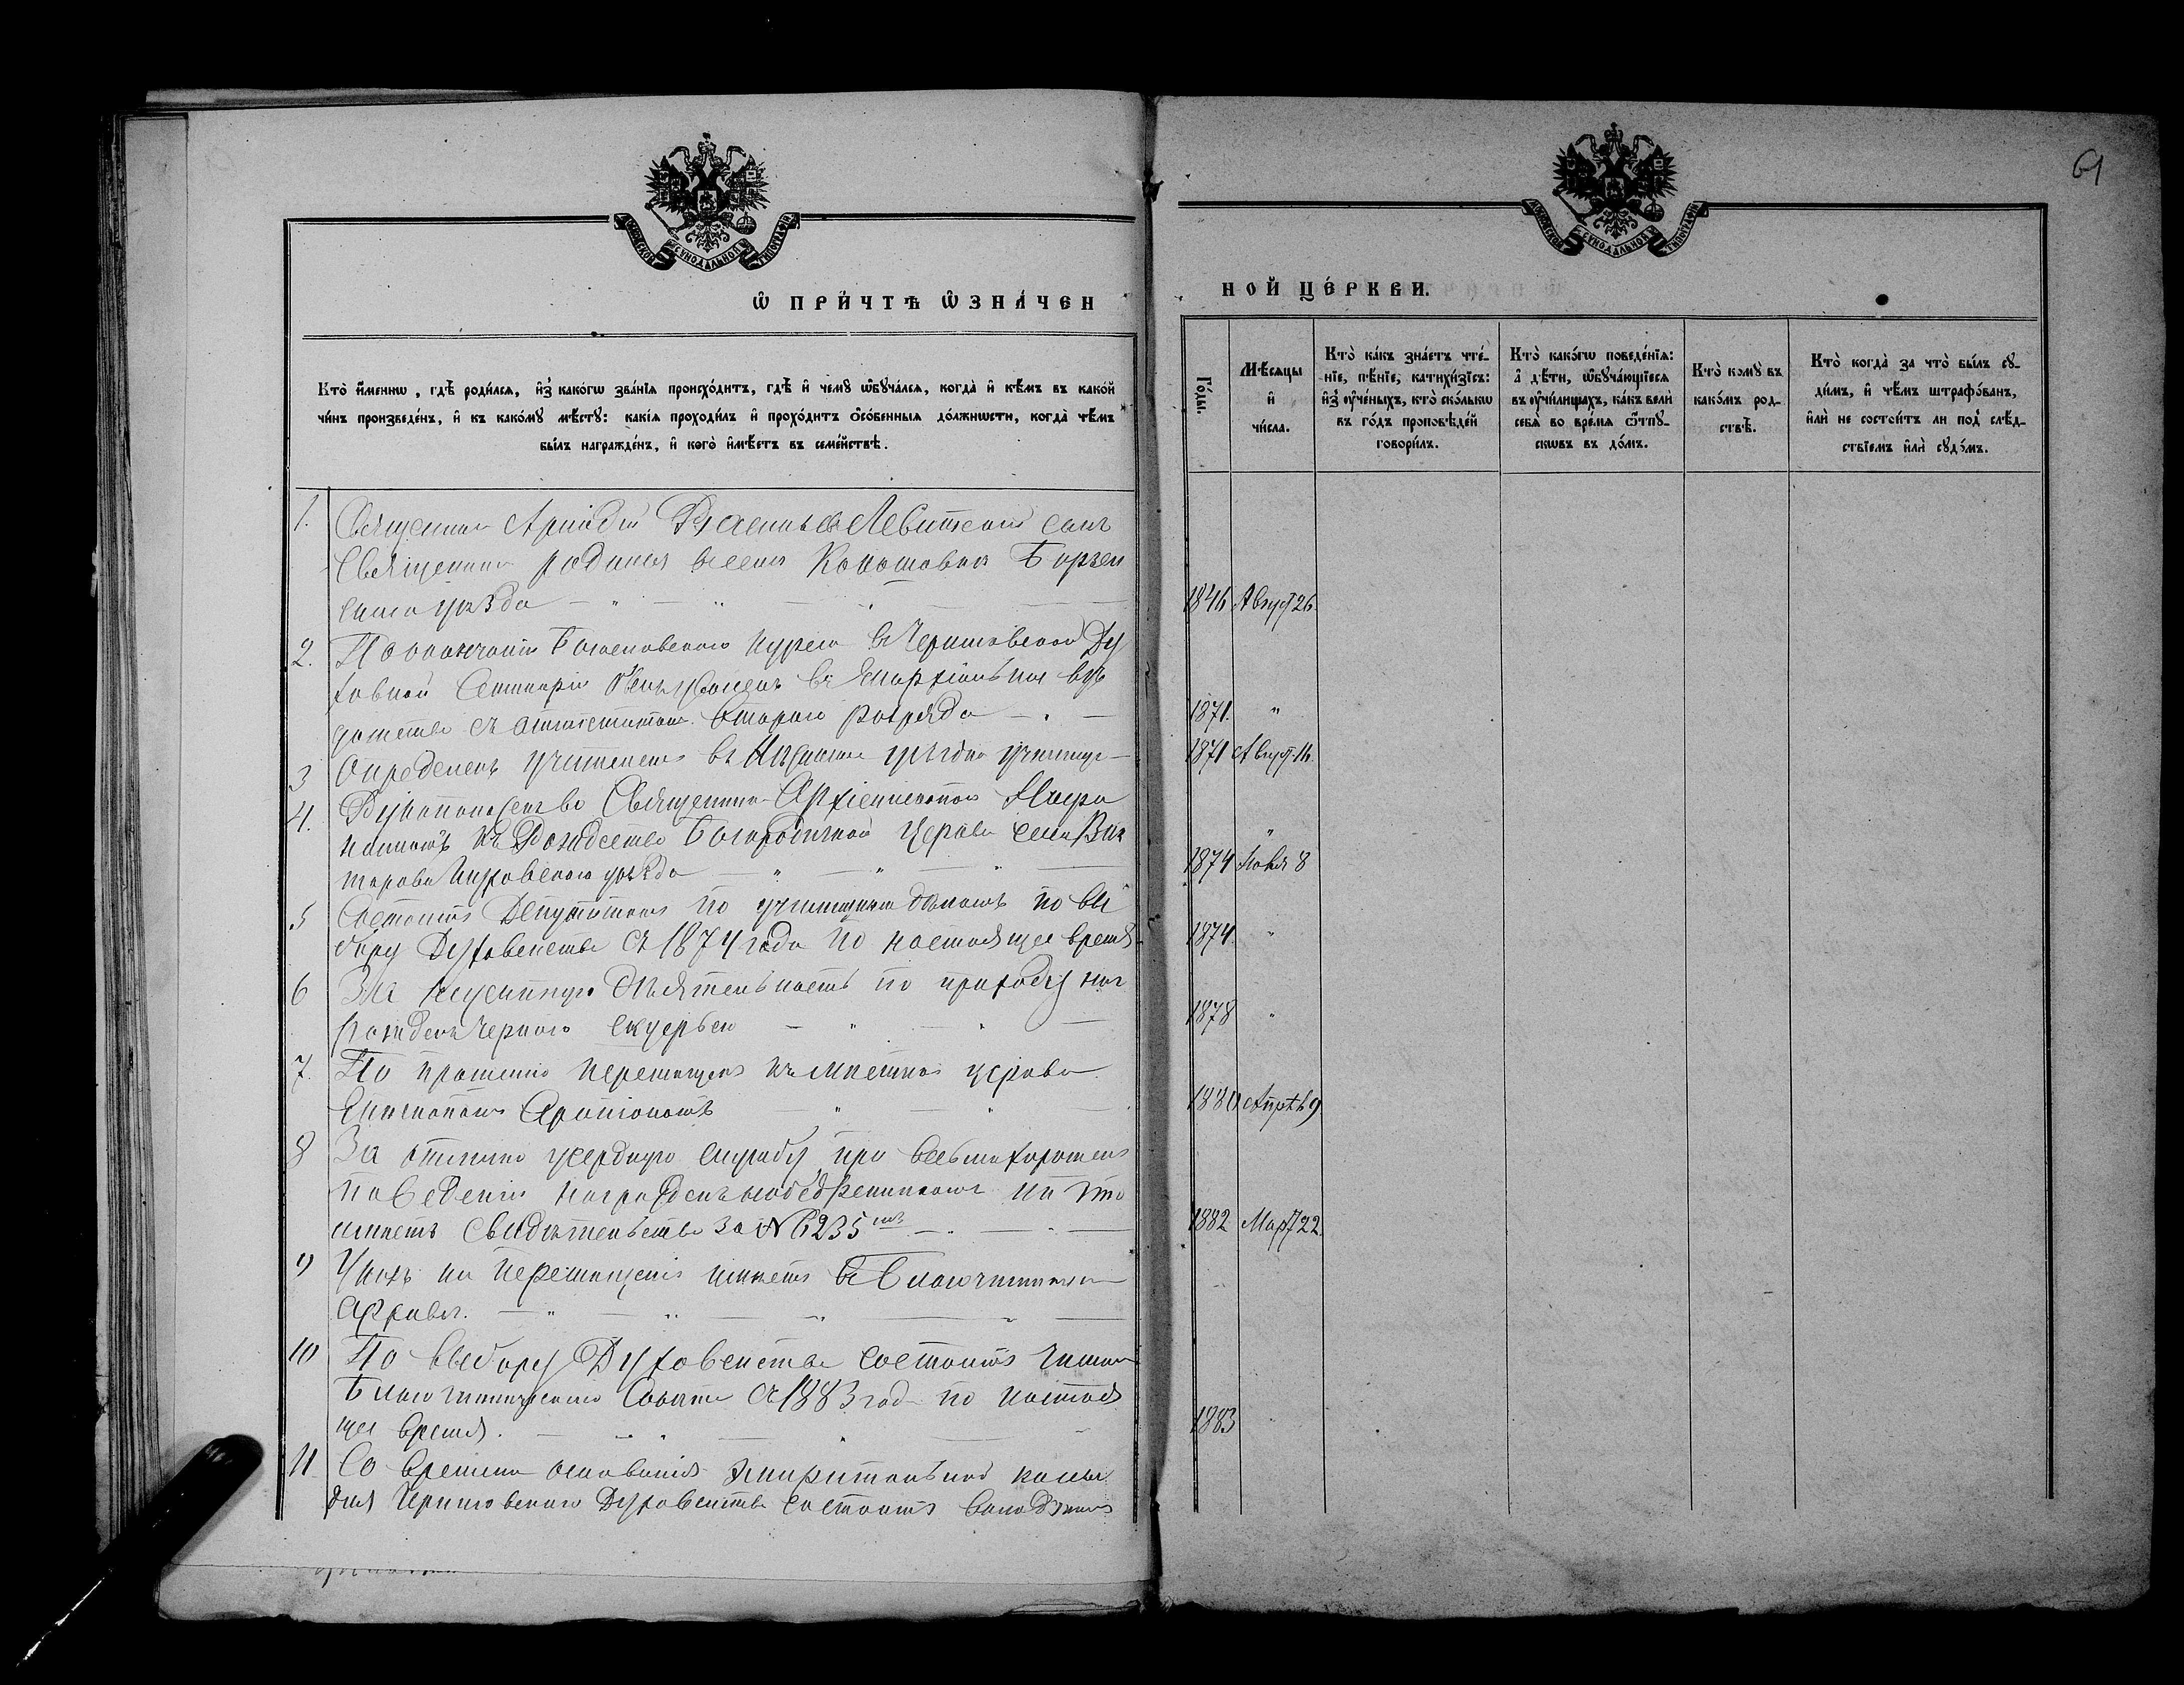 61
МОСКОВСКОЙ СѴНОДАЛЬНОЙ ТИПОГРАФІИ
МОСКОВСКОЙ СѴНОДАЛЬНОЙ ТИПОГРАФІИ
Ѡ ПРИ́ЧТѢ Ѡ҆ЗНА́ЧЕН
НОЙ ЦЕ́РКВИ.
Кто̀ и҆́менно, гдѣ̀ роди́лся, и҆з̾ како́гѡ зва́нїѧ происхо́дитъ, гдѣ̀ и҆ чемꙋ̀ ѡ҆бꙋча́лся, когда̀ и҆ кѣ́мъ въ како́й
чи́нъ произведе́нъ, и҆ къ како́мꙋ мѣ́стꙋ: какі́ѧ проходи́лъ и҆ прохо́дитъ ѻ҆со́бенныѧ до́лжности, когда̀ чѣ́мъ
бы́лъ награжде́нъ, и҆ кого̀ и҆мѣ́етъ въ семе́йствѣ.
Го́ды.
Мѣ́сѧцы
и҆
чи́сла.
Кто̀ ка́къ зна́етъ чте́-
нїе, пѣ́нїе, катихи́зїсъ:
и҆з̾ ᲂу҆че́ныхъ, кто̀ ско́лькѡ
въ го́дъ проповѣ́дей
говори́лъ.
Кто̀ како́гѡ поведе́нїѧ:
а҆ дѣ́ти, ѡ҆бꙋча́ющїесѧ
въ ᲂу҆чи́лищахъ, ка́къ велѝ
себѧ̀ во вре́мѧ ѿпꙋ-
сковъ въ до́мъ.
Кто̀ комꙋ̀ въ
како́мъ род-
ствѣ̀.
Кто̀ когда̀ за что̀ бы́лъ сꙋ-
ди́мъ, и҆ чѣ́мъ штрафо́ванъ,
и҆лѝ не состои́тъ ли под̾ слѣ́д-
ствїемъ и҆лѝ сꙋдо́мъ.
1. Священникъ Аркадій Васильевъ Левитскій сынъ
Священника родился въ селѣ Борзен
скаго уѣзда 1846 Август 26.
2. По окончаніи Богословскаго курса въ Черниговской Ду
ховной Семинаріи уволенъ въ Епархіальное вѣ
домство съ аттестатомъ втораго разряда 1871.
3 Опредѣленъ учителемъ въ уѣздное училище 1871 Август. 16.
4. Рукоположенъ во Священника Архіепископомъ
къ Рождество Богородичной Церкви села
уѣзда 1874 Ноябя 8
5 Состоитъ Депутатомъ по училищнымъ дѣламъ по вы
бору Духовенства съ 1874 года по настоящее время 1874.
6 За дѣятельность по приходу наг
ражденъ черною скуфьею 1878
7. По прошенію перемѣщенъ къ мѣстной церкви
Епископомъ Серапіономъ 1880 Апрѣль 9
8 За отлично усердную службу при весьма хорошемъ
поведеніи награжденъ набедренникомъ на что
имѣетъ свидѣтельство за № 6235мъ 1882 Март 22.
9 Указъ на перемѣщеніе имѣетъ въ Благочинномъ
архивѣ.
10 По выбору Духовенства состоитъ членомъ
Благочинническаго Совѣта съ 1883 год по настоя
щее время. 1883
11. Со времени основанія эмеритальной кассы
для Черниговскаго Духовенства состоитъ